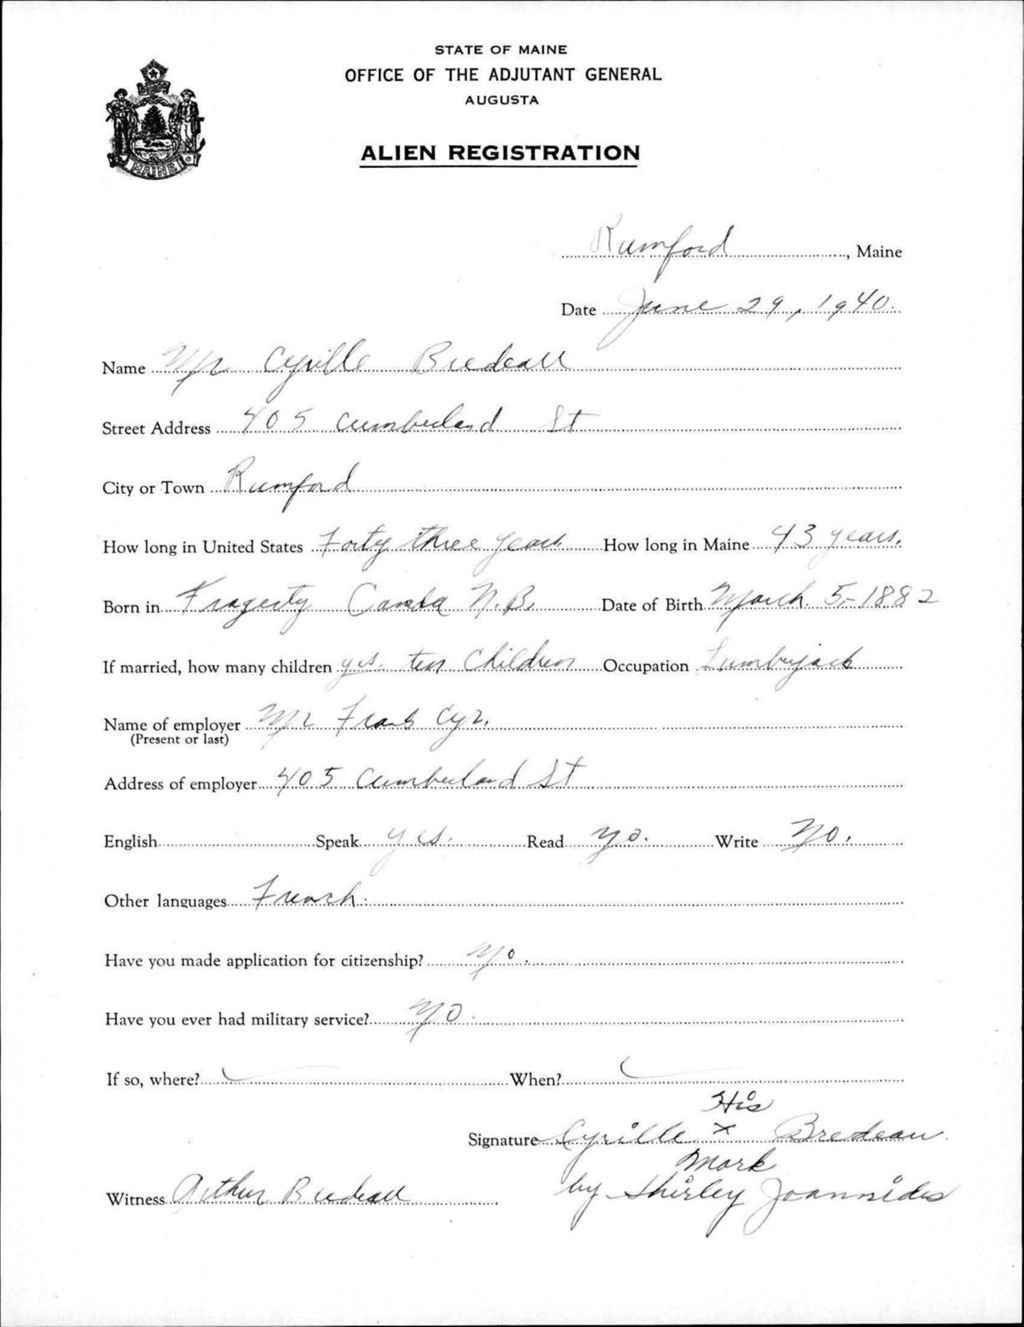 STATE OF MAINE
OFFICE OF THE ADJUTANT GENERAL
AUGUSTA
ALIEN REGISTRATION
MAINE
Rumford, Maine
Date June 29, 1940.
Name Mr Cyrille Bredeau
Street Address 405 Cumberland St
City or Town Rumford
How long in United States Forty three years How long in Maine 43 years.
Born in Canada N.B. Date of Birth March 5-1882
If married, how many children yes. ten Children Occupation Lumbyjack
Name of employer Mr Frank Cyr.
(Present or last)
Address of employer 405 Cumberland St
English Speak yes. Read No. Write No.
Other languages French.
Have you made application for citizenship? No.
Have you ever had military service? No.
If so, where? When?
His
Signature Cyrille x Bredeau
Mark
Witness Arthur Bredeau by Shirley Joannides